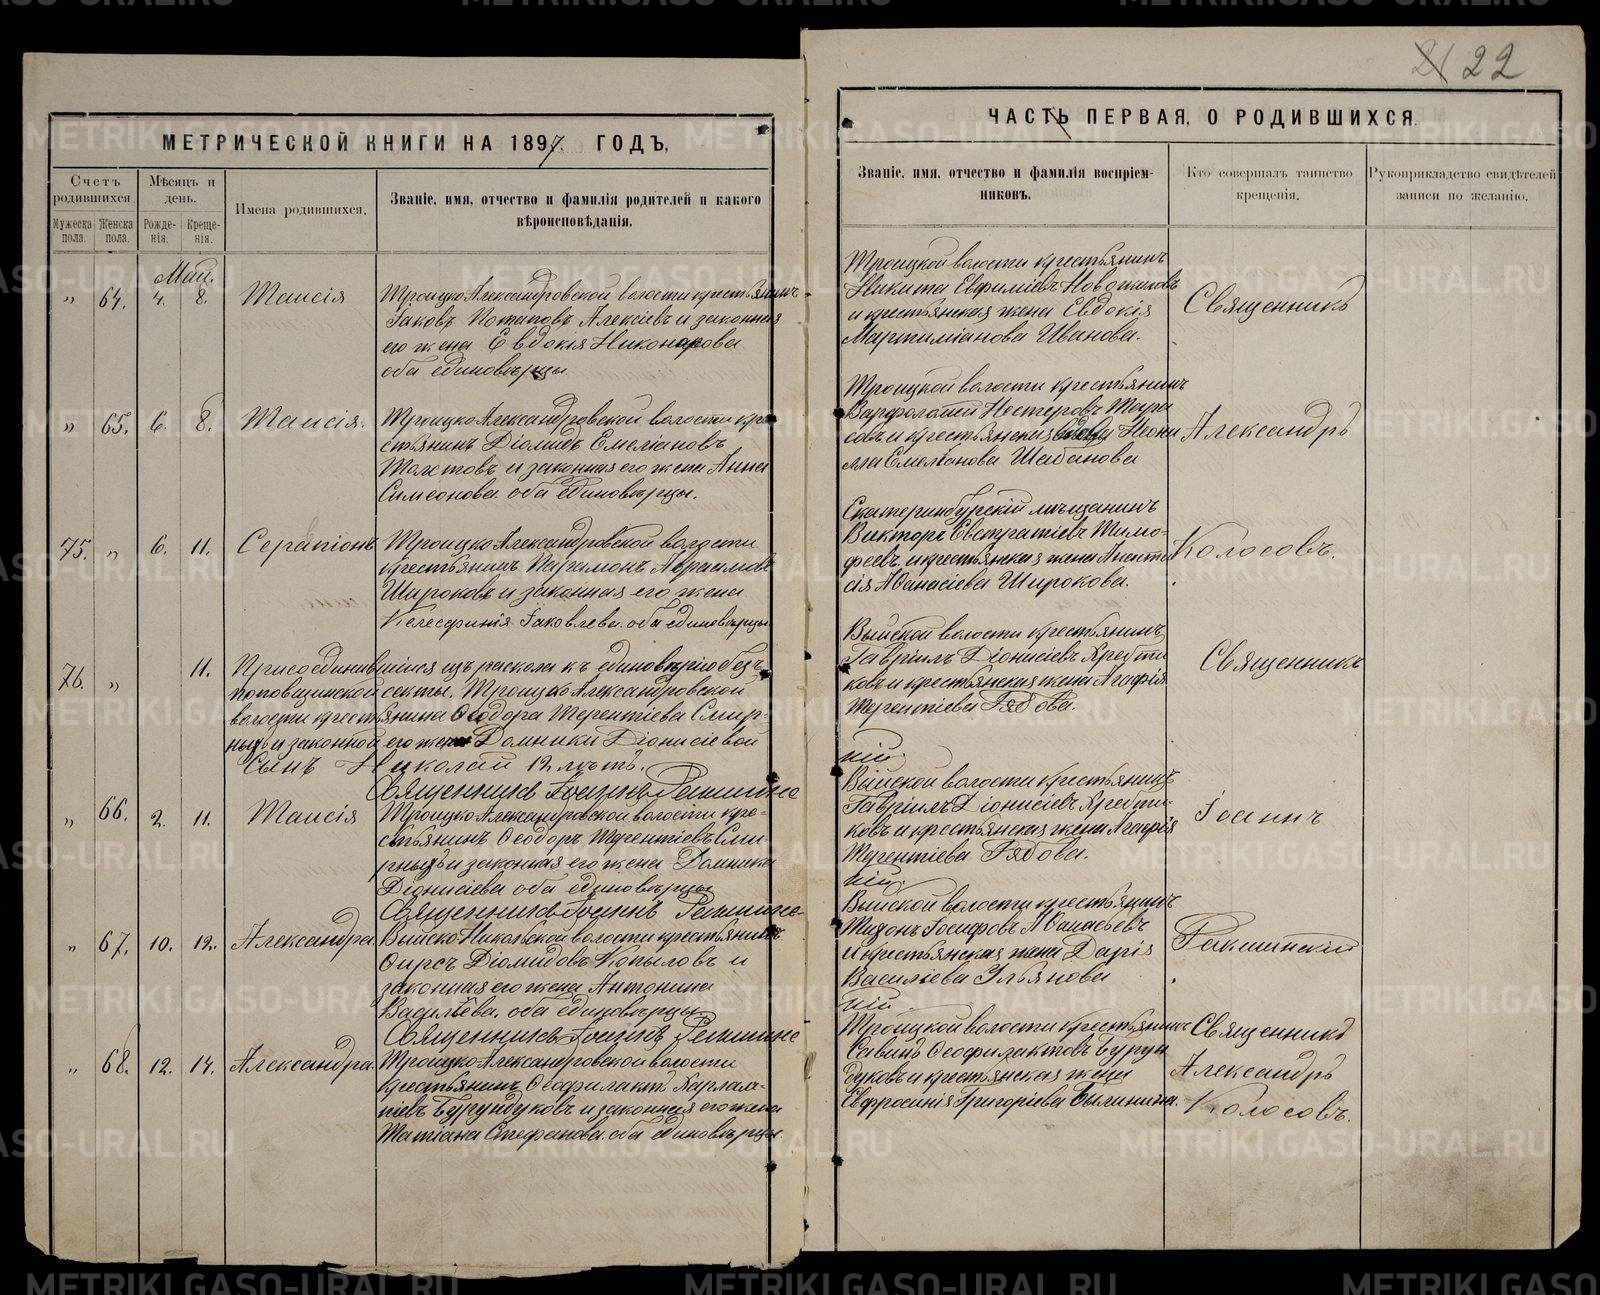 21 22
МЕТРИЧЕСКОЙ КНИГИ НА 1897. ГОДЪ,
Счетъ родившихся
Мѣсяцъ и день.
Мужеска пола.
Женска пола.
Рожденія.
Крещенія.
Имена родившихся.
Званіе, имя, отчество и фамилія родителей и какого
вѣроисповѣданія.
Май.
„ 64. 4. 8. Таисія
Троицко Александровской волости крестьянинъ
Іаковъ Потаповъ Алексѣевъ и законная
его жена Евдокія Никонорова
оба единовѣрцы.
„ 65. 6. 8. Таисія.
Троицко Александровской волости кре-
стьянинъ Діомидъ Емеліановъ
Толстовъ и законная его жена Анна
Симеонова. оба единовѣрцы.
75. „ 6. 11. Серапіонъ
Троицко Александровской волости
крестьянинъ Парамонъ Авраамовъ
Широковъ и законная его жена
Келесфинія Іаковлева. оба единовѣрцы
76. „ 11.
Присоединившійся изъ раскола къ единовѣрію безъ
поповщинской секты, Троицко Александровской
волости крестьянина Ѳеодора Терентіева Смир-
ныхъ и законной его жены Домники Діонисіевой
Сынъ Николай 12 лѣтъ.
Священникъ Іоаннъ Ракшинс
„ 66. 2. 11. Таисія
Троицко Александровской волости кре-
стьянинъ Ѳеодоръ Терентіевъ Сми-
рныхъ и законная его жена Домника
Діонисіева оба единовѣрцы
Священникъ Іоаннъ Ракшинс
„ 67. 10. 12. Александра.
Выйско-Никольской волости крестьянинъ
Ѳирсъ Діомидовъ Копыловъ и
законная его жена Антонина
Васильева. оба единовѣрцы.
Священникъ Іоаннъ Ракшинс
„ 68. 12. 14. Александра.
Троицко Александровской волости
крестьянинъ Ѳеофилактъ Харлам-
піевъ Бурундуковъ и законная его жена
Татіана Стефанова. оба единовѣрцы.
ЧАСТЬ ПЕРВАЯ, О РОДИВШИХСЯ.
Званіе, имя, отчество и фамилія воспріем-
никовъ.
Кто совершалъ таинство
крещенія.
Рукоприкладство свидѣтелей
записи по желанію.
Троицкой волости крестьянинъ
Никита Евфиміевъ Новожиловъ
и крестьянская жена Евдокія
Мартиміанова Иванова.
Священникъ
Троицкой волости крестьянинъ
Варфоломей Нестеровъ Тара
совъ и крестьянская вдова Неони
лла Емеліанова Шабанова
Александръ
Екатеринбургскій мѣщанинъ
Викторъ Евстратіевъ Тимо-
феевъ и крестьянская жена Анаста
сія Аѳанасіева Широкова.
Колосовъ.
Выйской волости крестьянинъ
Гавріилъ Діонисіевъ Хребти
ковъ и крестьянская жена Агафія
Терентіева Рябова.
Священникъ
кій
Выйской волости крестьянинъ
Гавріилъ Діонисіевъ Хребти-
ковъ и крестьянская жена Агафія
Терентіева Рябова.
Іоаннъ
кій.
Выйской волости крестьянинъ
Тихонъ Іосифовъ Аѳанасьевъ
и крестьянская жена Дарія
Васильева Ульянова
Ракшинскій
кій.
Троицкой волости крестьянинъ
Савинъ Ѳеофилактовъ Бурун
дуковъ и крестьянская жена
Евфросинія Григоріева Былинина.
Священникъ
Александръ
Колосовъ.
METRIKI.GASO-URAL.RU